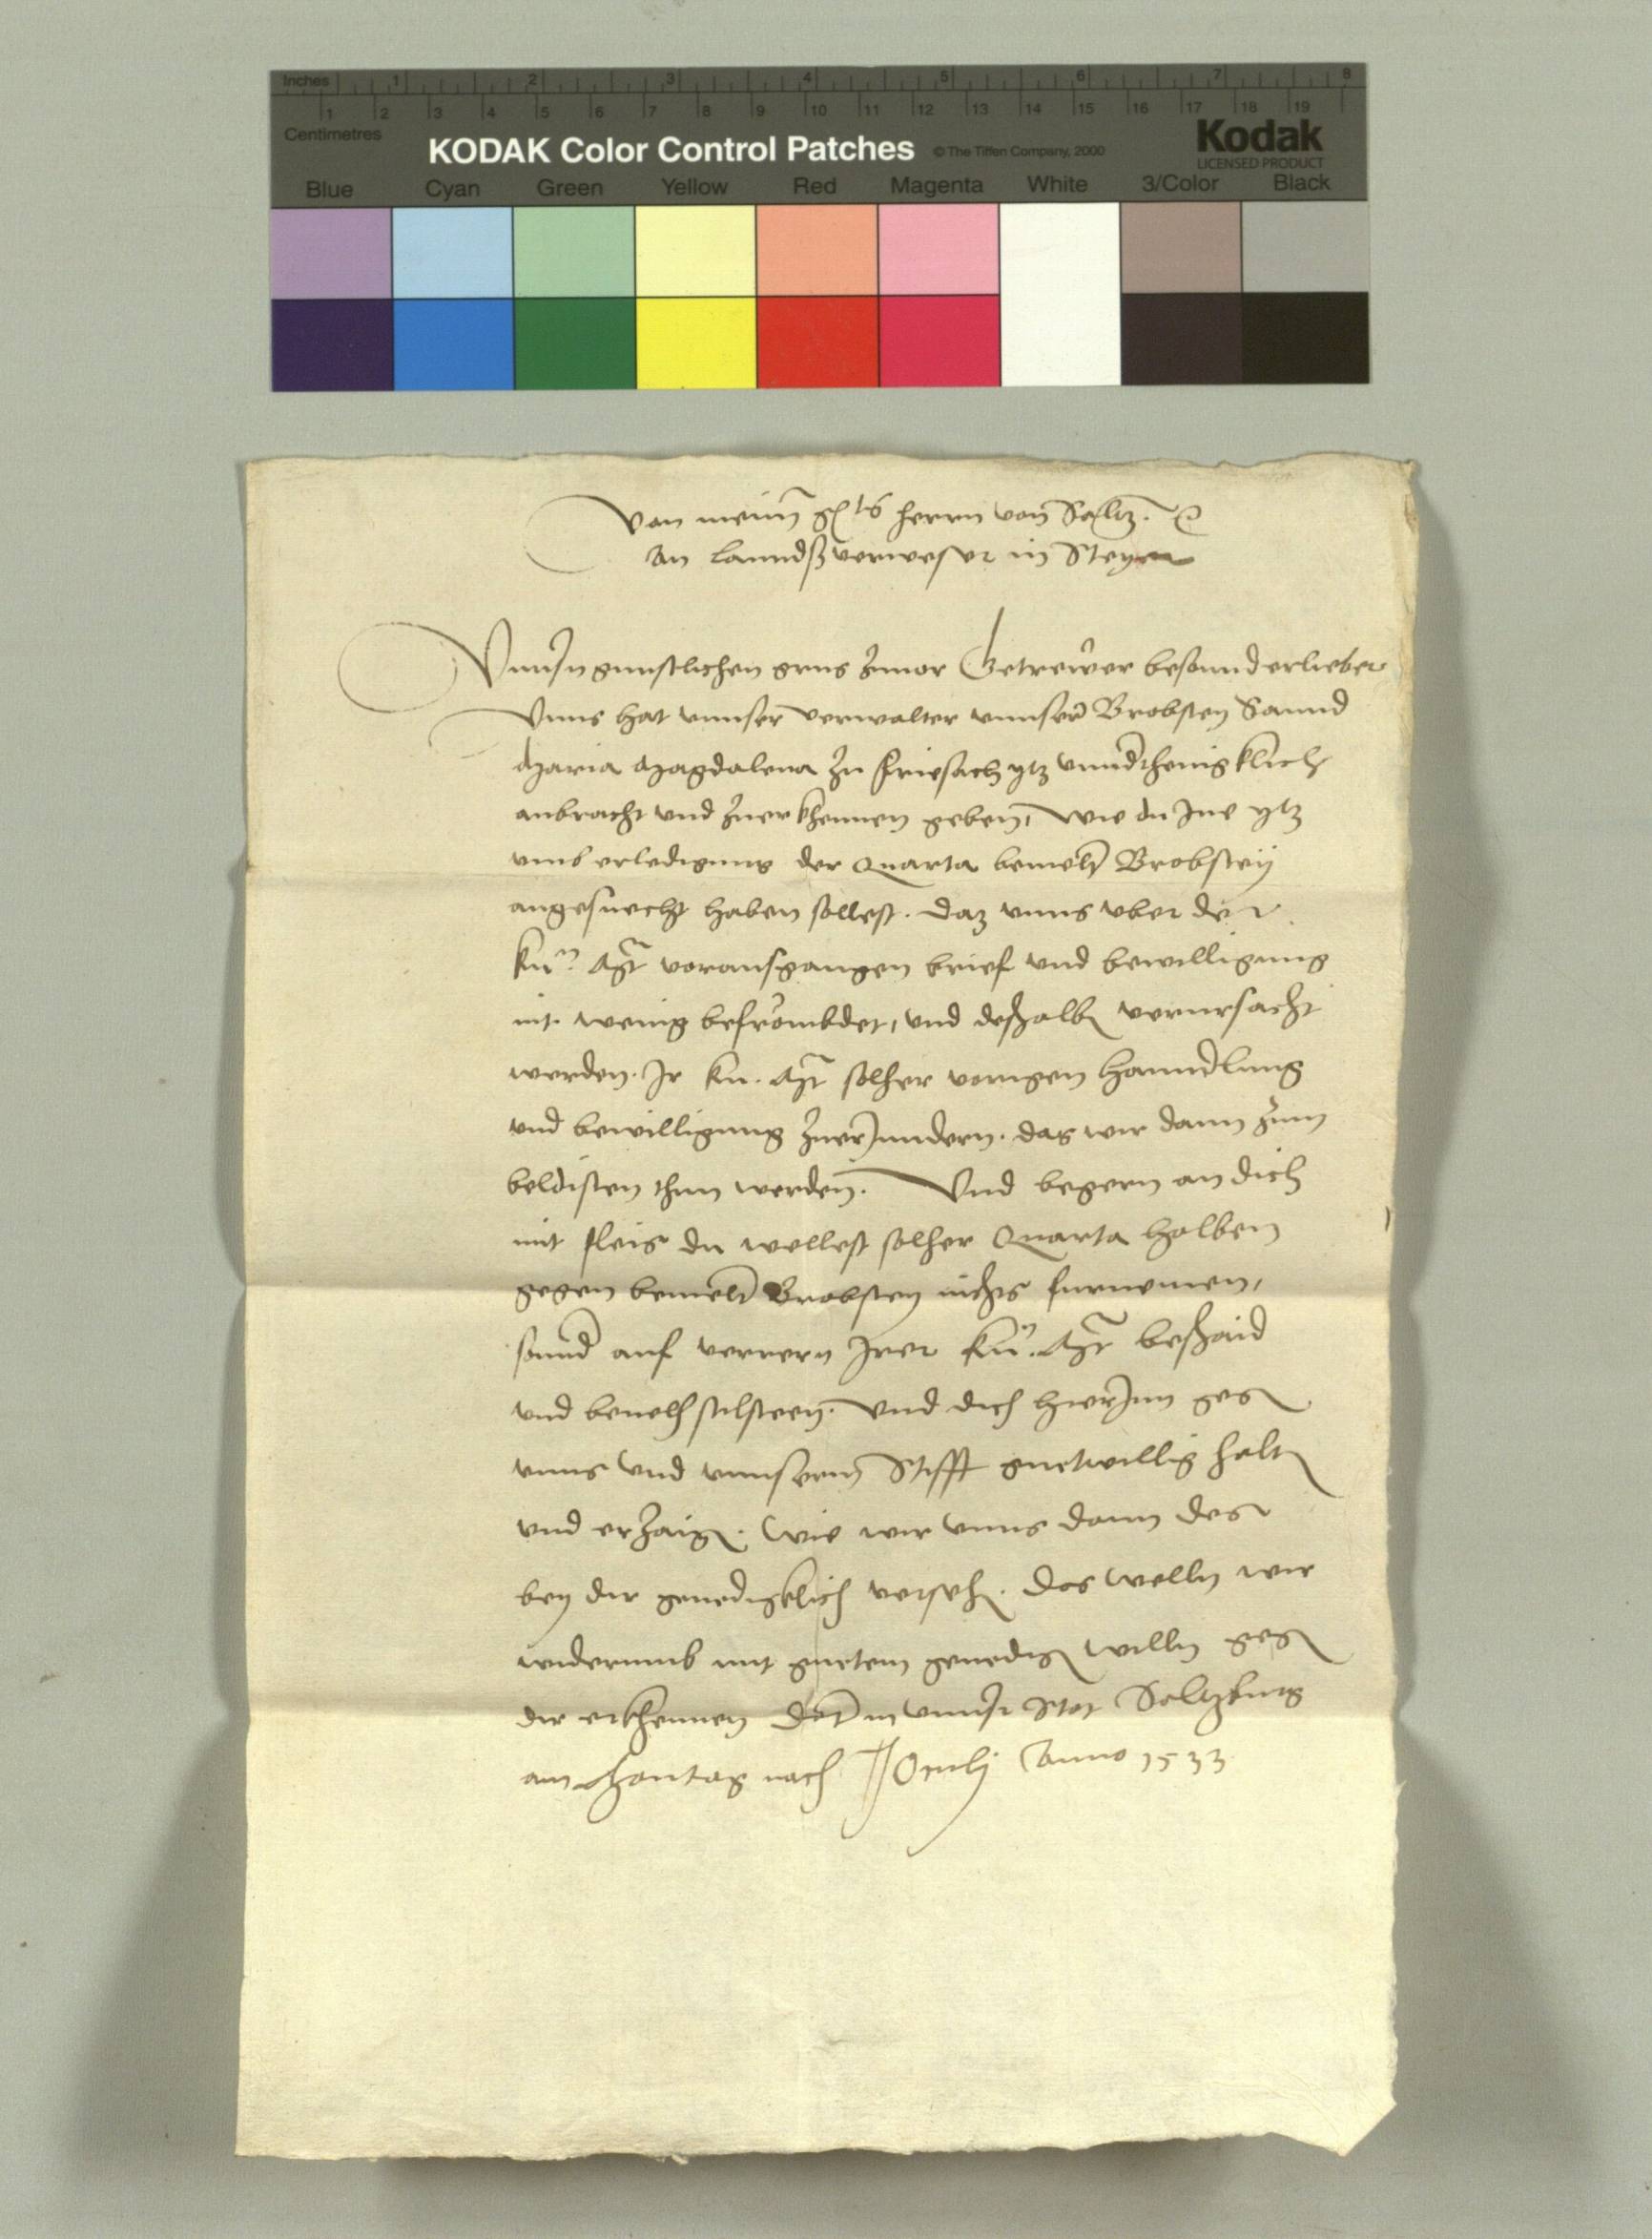 Inches 1 2 3 4 5 6 7 8
1 2 3 4 5 6 7 8 9 10 11 12 13 14 15 16 17 18 19
Centimetres
KODAK Color Control Patches © The Tiffen Company, 2000 Kodak
LICENSED PRODUCT
Blue Cyan Green Yellow Red Magenta White 3/Color Black
Von meinn g[sten] herrn von Saltz. &
an lanndßverweser in Steyer
Vnnsn gunstlichen grus zuuor Getrewer besonnderlieber
Vnns hat vnnser verwalter vnnserer Brobstey Sannd
Maria Magdalena zu Friesach ytz vnndthenigklich
anbracht vnd zuerkhennen geben, wie du Ine ytz
vmb erledigung der Quarta bemelt Brobsteÿ
angesuecht haben sollest. daz vnns vber der
Kun. Mt voraufgangen brief vnd bewilligung
nit wenig befrömbdet, vnd deßhalb verursacht
werden. Ir Ku. Mt solher vorigen Hanndlung
vnd bewilligung zuerJnndern. das wir dann zum
beldisten thun werden. Vnd begern an dich
mit fleis du wellest solher Quarta halben
gegen bemelt Brobstey nichts furnemen,
sonnd auf verrern Irer Kü. Mt beschaid
vnd beuelh stilsteen. Vnd dich hierJnn geg
vnns vnd vnnserm Stifft guetwillig halt
vnd erzaig. Wie wir vnns dann des
bey dir genedigklich verseh. das welln wir
widerumb mit guetem genedig willn geg
dir erkhennen Dat in vnnsr Stat Saltzburg
am Montag nach Oculj Anno 1533